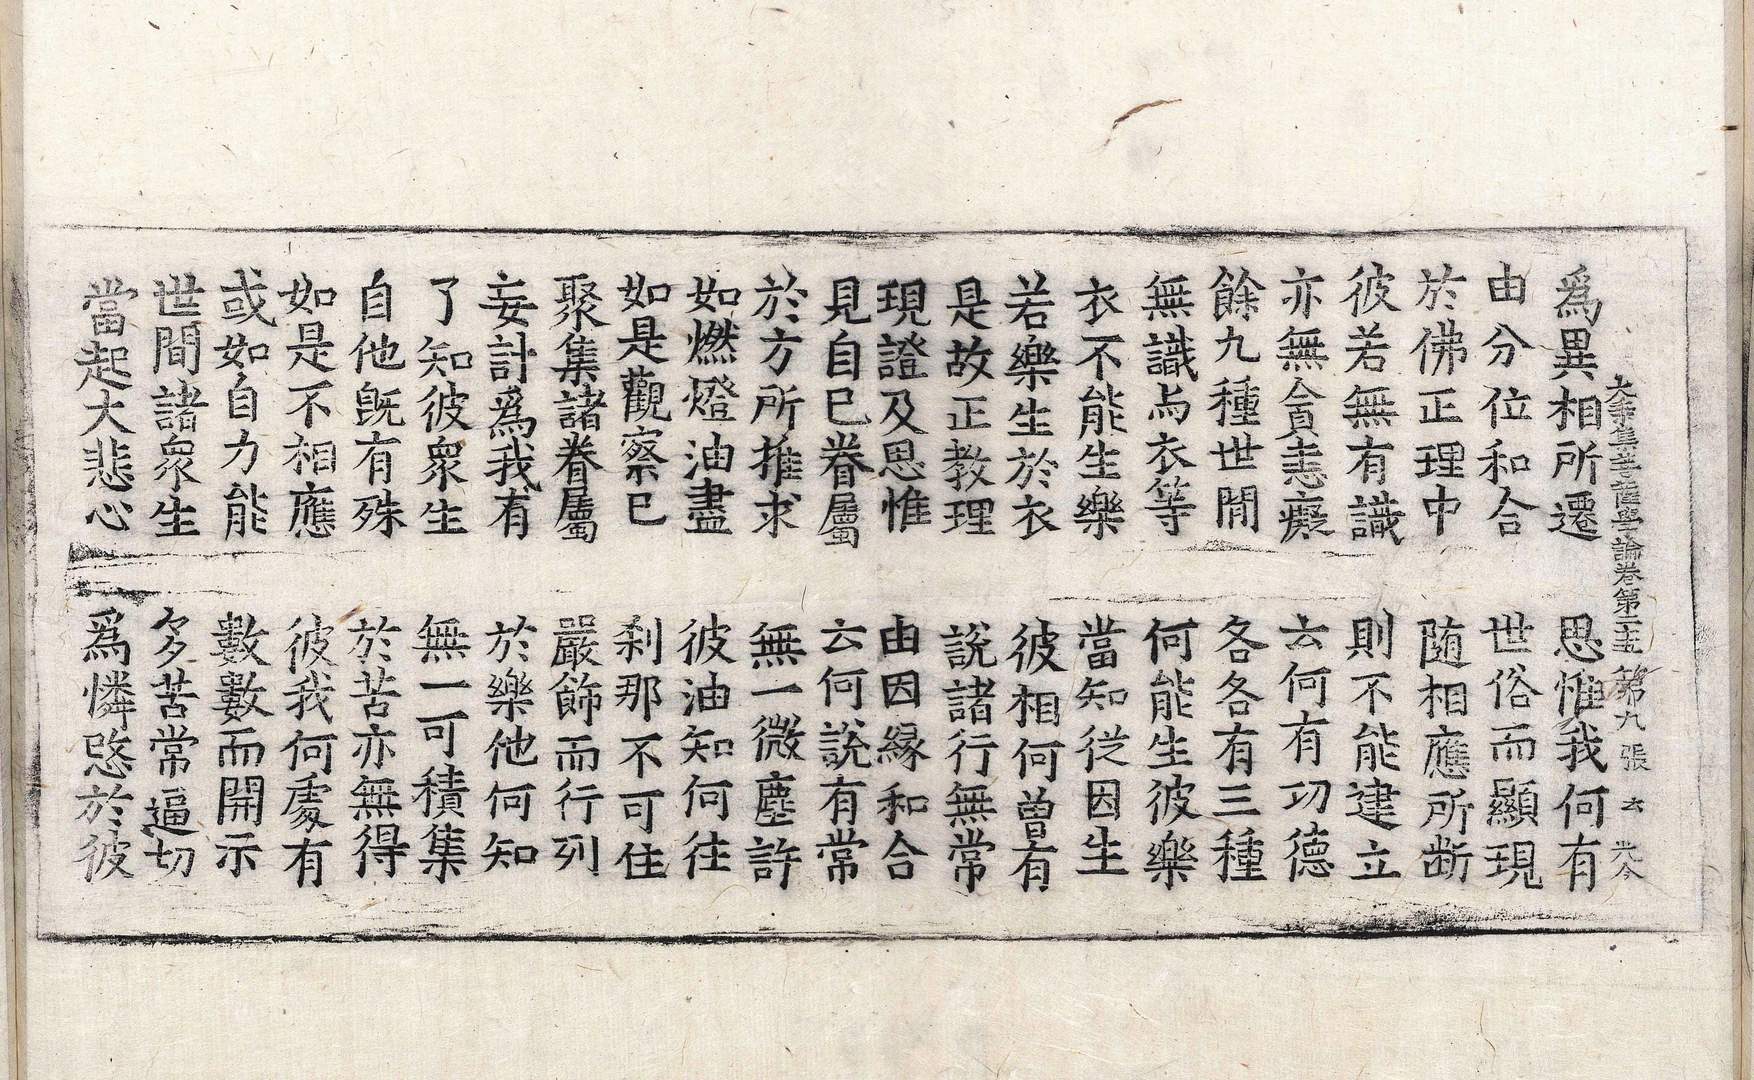 大乘集菩薩學論卷第二十五 第九張 六
爲異相所遷 思惟我何有
由分位和合 世俗而顯現
於佛正理中 随相應所断
彼若無有識 則不能建立
亦無貪恚癡 云何有功德
餘九種世間 各各有三種
無識与衣等 何能生彼樂
衣不能生樂 當知從因生
若樂生於衣 彼相何曾有
是故正教理 說諸行無常
現證及思惟 由因緣和合
見自巳眷屬 云何說有常
於方所推求 無一微塵許
如燃燈油盡 彼油知何往
如是觀察巳 刹那不可住
聚集諸眷屬 嚴飾而行列
妄計爲我有 於樂他何知
了知彼衆生 無一可積集
自他旣有殊 於苦亦無得
如是不相應 彼我何處有
或如自力能 數數而開示
世間諸衆生 多苦常逼切
當起大悲心 爲憐愍於彼